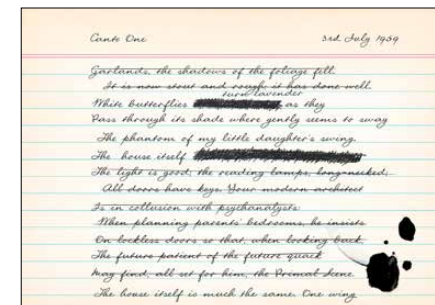 Canto One 3rd July 1959
Garlands, the shadows of the foliage fell.
It is now stout and rough; it has done well.
turn lavender
White butterflies as they
Pass through its shade where gently seems to sway
The phantom of my little daughter's swing.
The house itself
The light is good; the reading lamps, long-necked;
All doors have keys. Your modern architect
Is in collusion with psychanalysts:
When planning parents' bedrooms, he insists
On lockless doors so that, when looking back,
The future patient of the future quack
May find, all set for him, the Primal Scene.
The house itself is much the same. One wing